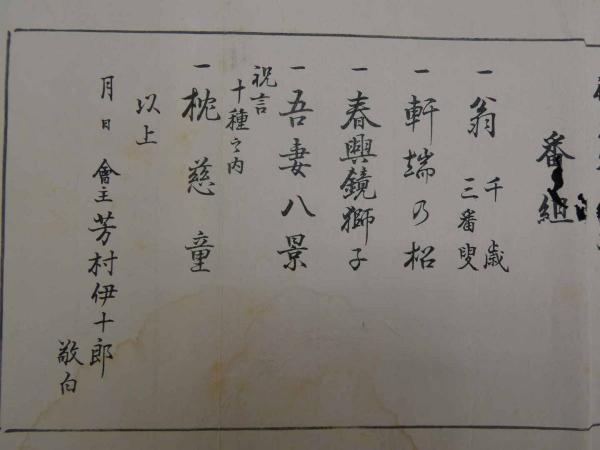 番組
一 翁 千歳
三番叟
一 軒端の松
一 春興鏡獅子
一 吾妻八景
祝言
十種之内
一 枕慈童
以上
月日 會主 芳村伊十郎
敬白